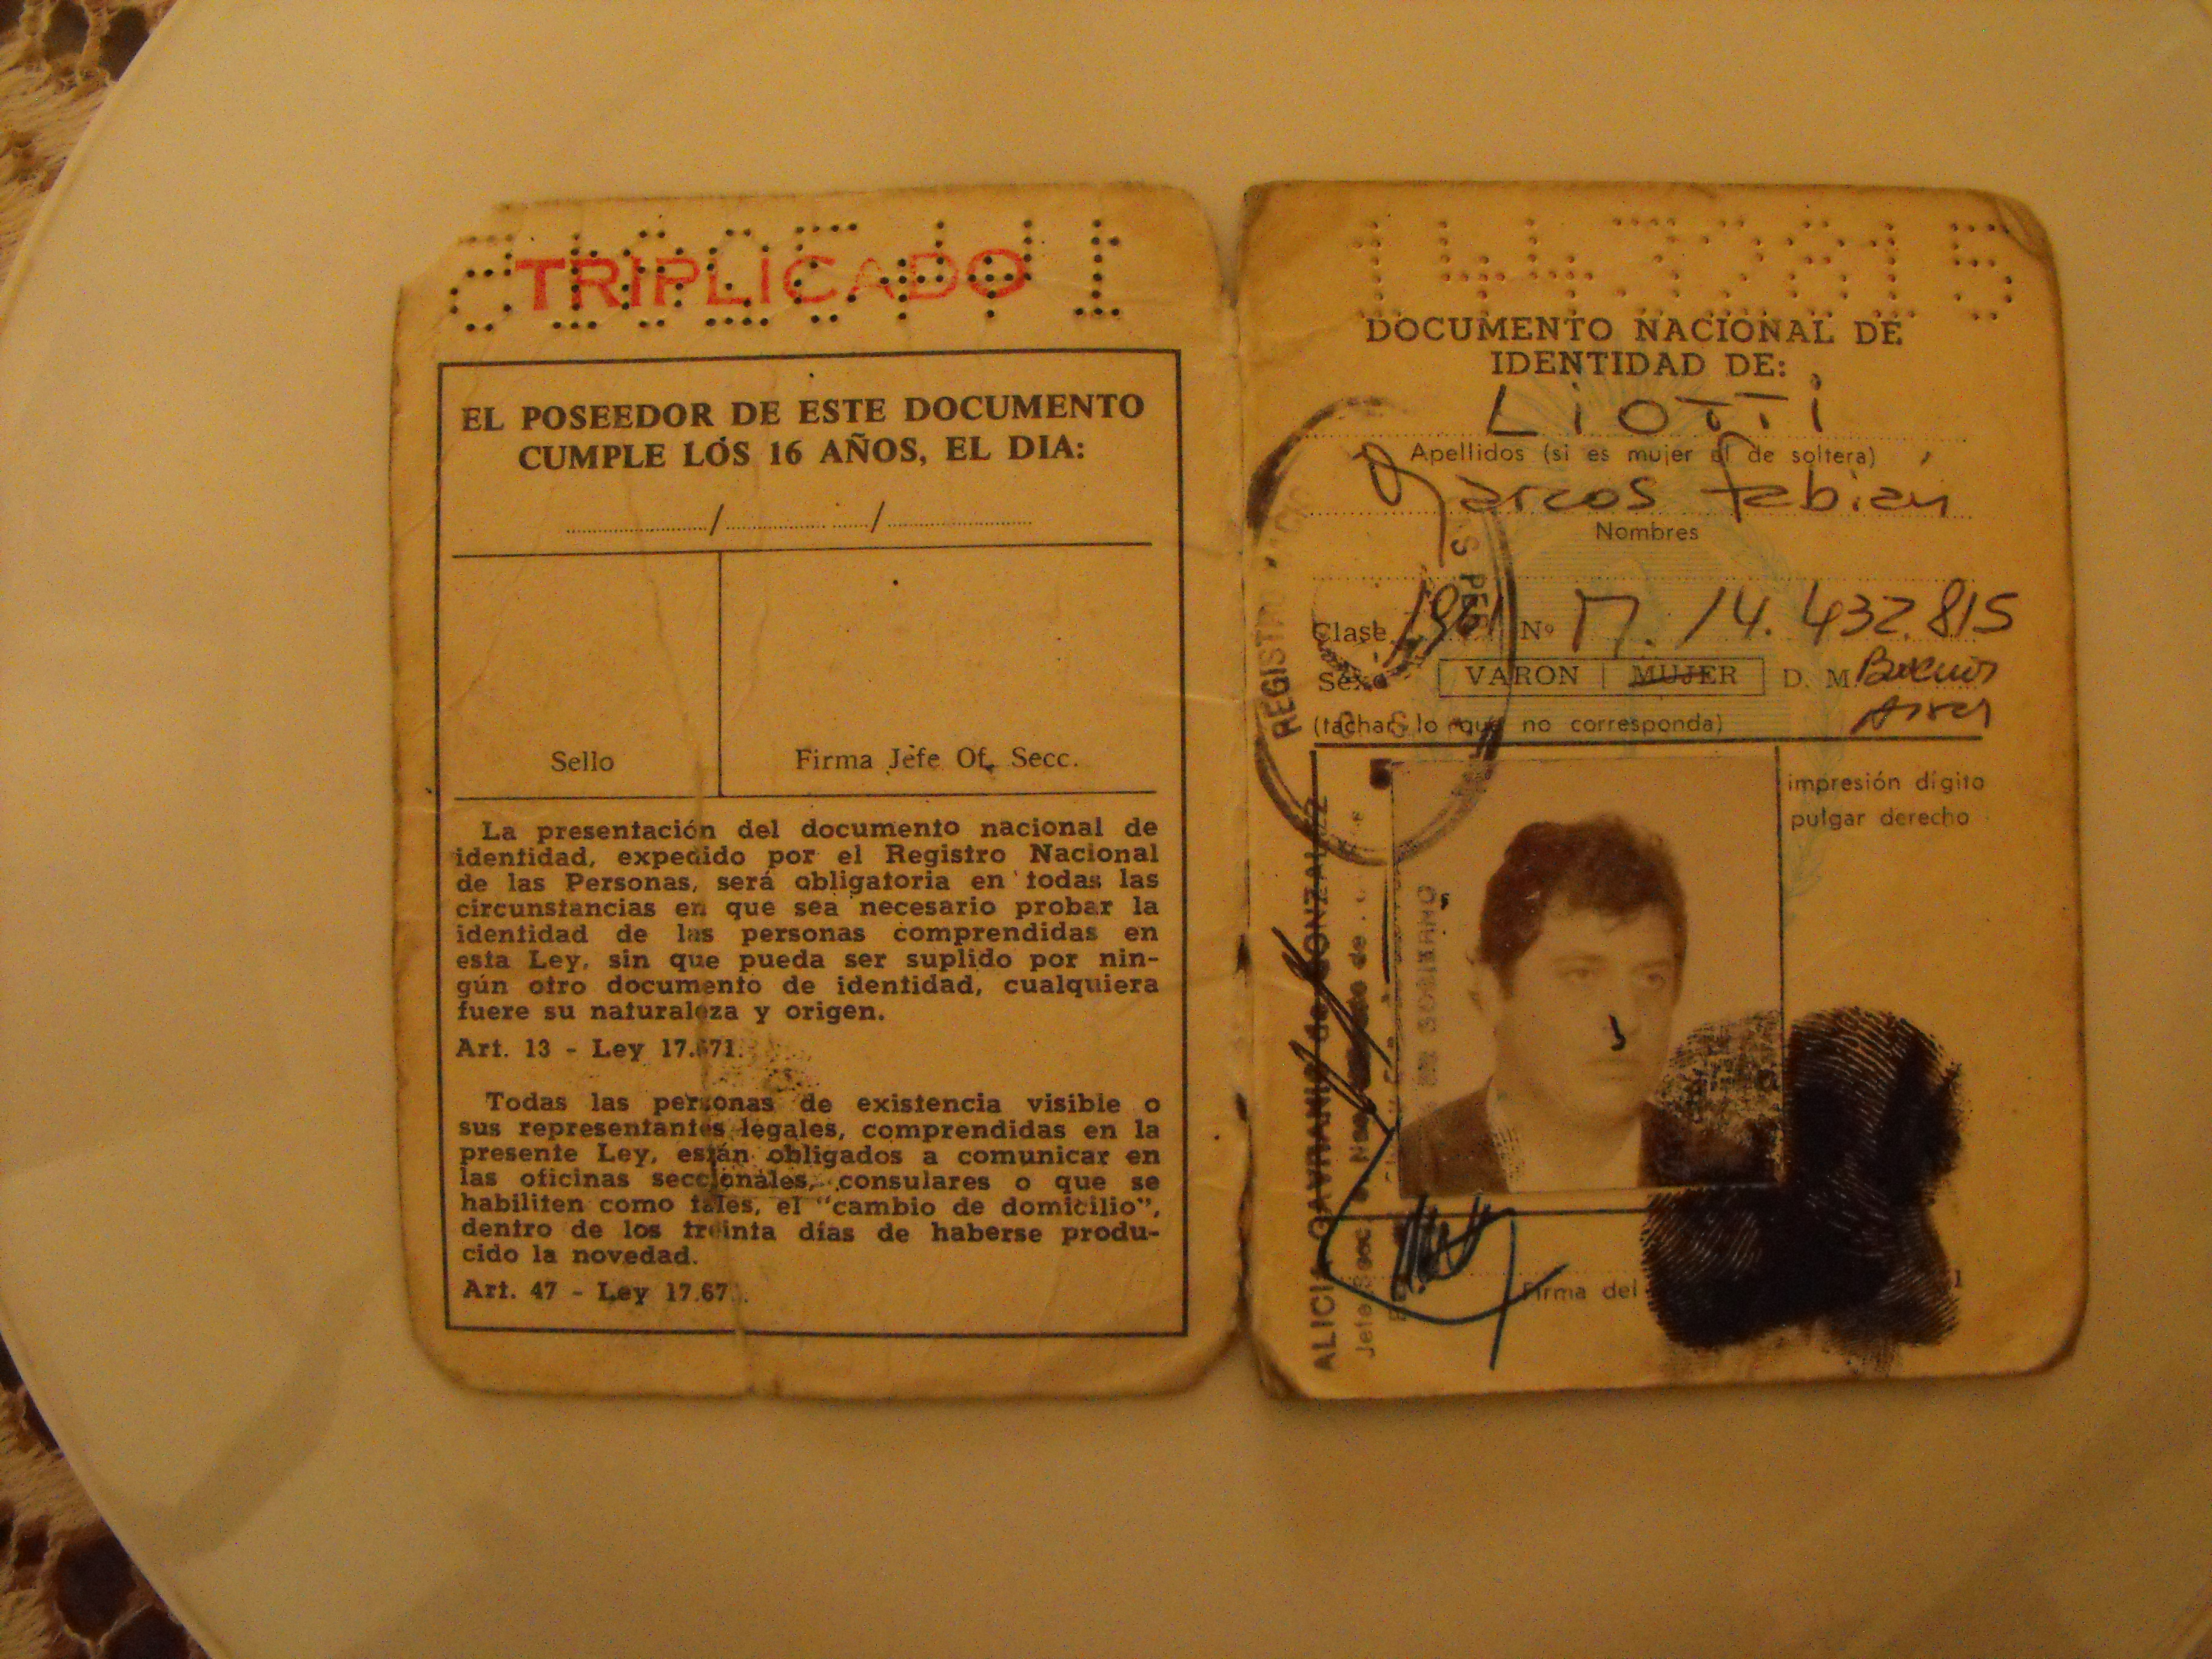 TRIPLICADO
EL POSEEDOR DE ESTE DOCUMENTO
CUMPLE LOS 16 AÑOS, EL DIA:
/ /
Sello
Firma Jefe Of. Secc.
La presentación del documento nacional de
identidad, expedido por el Registro Nacional
de las Personas, será obligatoria en todas las
circunstancias en que sea necesario probar la
identidad de las personas comprendidas en
esta Ley, sin que pueda ser suplido por nin-
gún otro documento de identidad, cualquiera
fuere su naturaleza y origen.
Art. 13 - Ley 17.671.
Todas las personas de existencia visible o
sus representantes legales, comprendidas en la
presente Ley, están obligados a comunicar en
las oficinas seccionales, consulares o que se
habiliten como tales, el "cambio de domicilio",
dentro de los treinta días de haberse produ-
cido la novedad.
Art. 47 - Ley 17.67
14432815
DOCUMENTO NACIONAL DE
IDENTIDAD DE:
LiOTTi
Apellidos (si es mujer el de soltera)
Marcos Fabián
Nombres
Clase Nº M. 14.432.815
Sexo VARON | MUJER D. M. Buenos
Aires
(tachar lo que no corresponda)
impresión dígito
pulgar derecho
Firma del
REGISTRO
ALICIA de GONZALEZ
Jefe Secc.